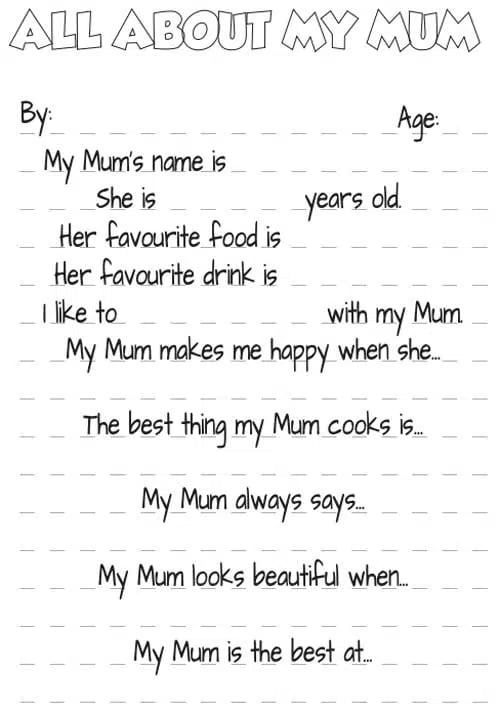 ALL ABOUT MY MUM
By: Age:
My Mum's name is
She is years old.
Her favourite food is
Her favourite drink is
I like to with my Mum.
My Mum makes me happy when she...
The best thing my Mum cooks is...
My Mum always says...
My Mum looks beautiful when...
My Mum is the best at...